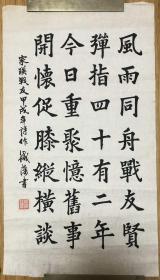 風雨同舟戰友賢
彈指四十有二年
今日重聚憶舊事
開懷促膝縱橫談
家瑛戰友甲戌年詩作
藩書